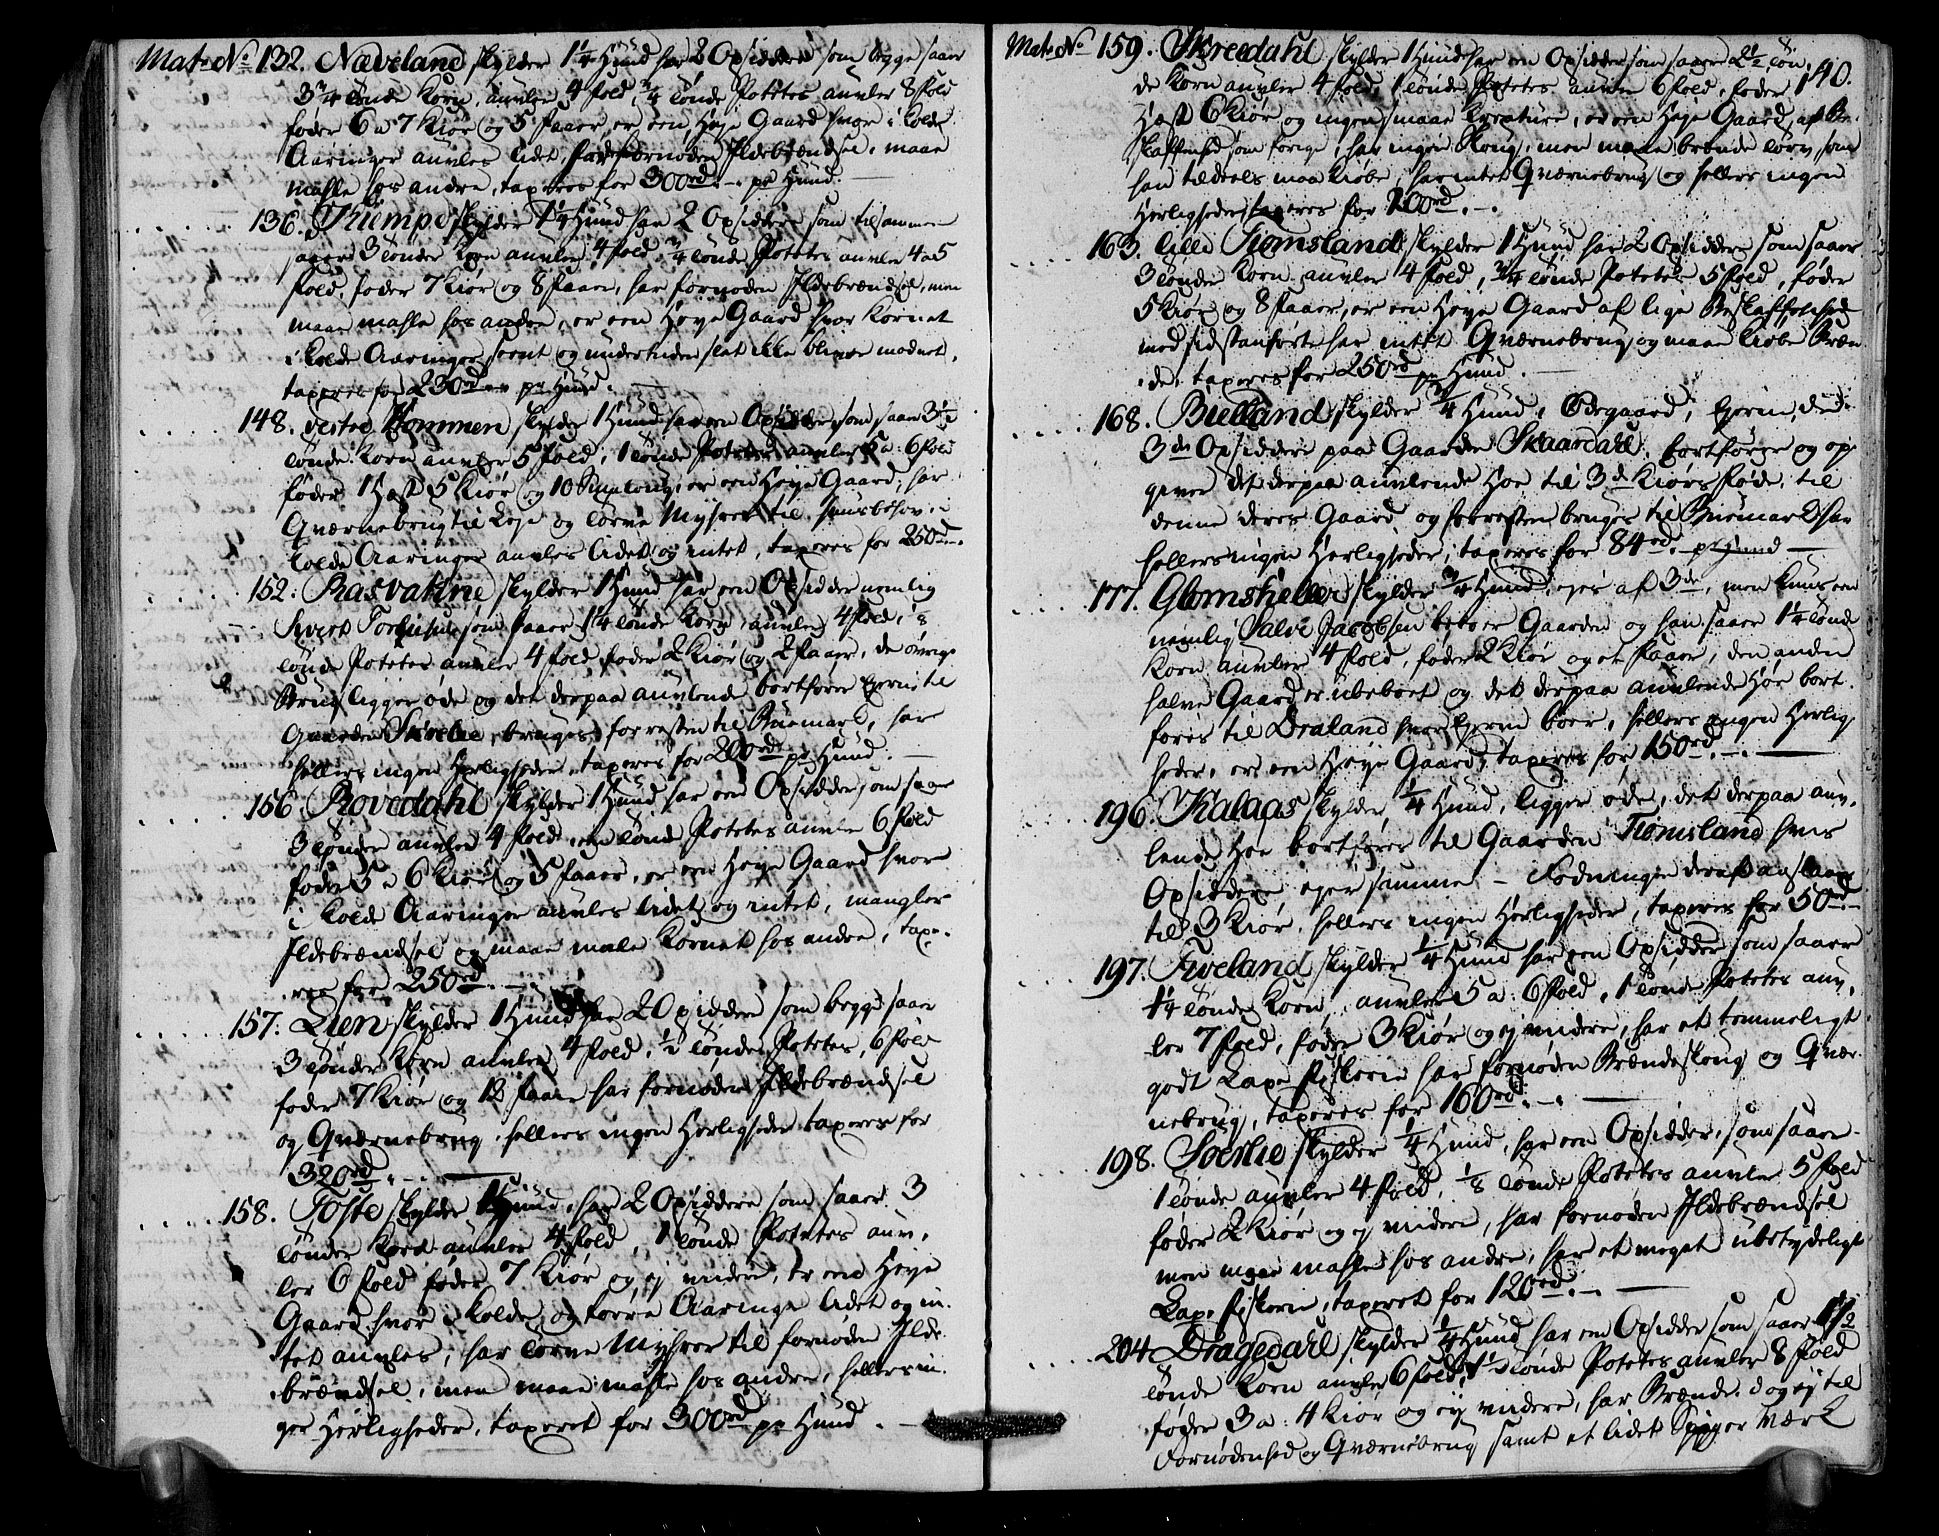 Mat: No 132. Næveland skylder 1¼ Huud har 2 Opsiddere som begge saae
3¼ tønde Korn, auvler 4 fold, ¼ tønde Potetes auvler 8 fold
føder 6 a 7 Kiør og 5 Faaer, er een Høye Gaard hvor i kolde
Aaringer auvles lidet, fornøden Ildebrændsel, maae
mahle hos andre, taxeres for 300rd. pr Huud.
136. Kiempe skylder 1¼ Huud har 2 Opsiddere som tilsammen
saaer 3 tønder Korn auvler 4 fold, ¼ tønde Potetes auvler 4 a 5
fold, føder 7 Kiør og 8 Faaer, har fornøden Ildebrændsel, men
maae mahle hos andre, er een Høye Gaard hvor Kornet
i kolde Aaringer seent og undertiden slet ikke bliver modnet,
taxeres for 230rd pr Huud.
148. vestre Hommen skylder 1 Huud har een Opsidder som saaer 3½
tønde Korn auvler 5 fold, 1 tønde Potetes auvler 5 a 6 fold
føder 1 Hæst 5 Kiør og 10 Smaleng, er een Høye Gaard, har
Qværnebrug til Leje og Torve Myhrer til Huusbehov, i
kolde Aaringer auvles lidet og intet, taxeres for 250rd.
152. Rasvatne skylder 1 Huud har een Opsidder nemlig
Sivert som saaer 1¼ tønde Korn, auvler 4 fold, ⅛
tønde Potetes auvler 4 fold, føder 2 Kiør og 2 Faaer, de øvrige
Brug ligger øde og det derpaa auvlende bortfører Ejerne til
Gaarden Skreelie, bruges forresten til Buemark, har
hellers ingen Herligheder, taxeres for 200rd pr Huud.
156 Rovedahl skylder 1 Huud har een Opsidder som saaer
3 tønder auvler 4 fold, een tønde Potetes auvler 6 fold
føder 5 a 6 Kiør og 5 Faaer, er een Høye Gaard hvor
i kolde Aaringer auvles lidet og intet, mangler
Ildebrændsel og maae male Kornet hos andre, taxe-
res for 250rd.
157. Lien skylder 1 Huud har 2 Opsiddere som begge saaer
3 tønder Korn auvler 4 fold, ½ tønde Potetes, 6 fold
føder 7 Kiør og 12 Faaer har fornøden Ildebrændsel
og Qværnebrug, hellers ingen Herligheder taxeres for
320rd.
158. Tofte skylder 1 Huud, har 2 Opsiddere som saaer 3
tønder Korn auvler 4 fold, 1 tønde Potetes auv-
ler 6 fold føder 7 Kiør og ej videre, er een Høye
Gaard hvor i kolde og tørre Aaringe lidet og in-
tet auvles, har Torve Myhrer til fornøden Ilde-
brændsel, men maae mahle hos andre, hellers in-
gen Herligheder, taxeret for 300rd pr Huud.
8.
140.
Mat: No 159. Skreedahl skylder 1 Huud har een Opsidder som saaer 2½ tøn-
de Korn auvler 4 fold, 1 tønde Potetes auvler 6 fold, føder 1
Hæst 6 Kiør og ingen smaae Kreature, er een Høye Gaard, af Be-
skaffenhed som forige, har ingen Skoug, men maae brænde Torv, som
han tildeels maae kiøbe, har intet Qværnebrug og hellers ingen
Herligheder taxeres for 200rd.
163. Lille Tiomsland skylder 1 Huud har 2 Opsiddere som saaer
3 tønder Korn auvler 4 fold, ¾ tønde Potetes 5 fold, føder
5 Kiør og 8 Faaer, er een Høye Gaard af lige Beskaffenhed
med sidstanførte har intet Qværnebrug og maae kiøbe Bræn-
de, taxeres for 250rd pr Huud.
168. Bielland skylder ¾ Huud, Ødegaard, Ejerne, de
3de Opsiddere paa Gaarden Skaardahl bortfører og op-
giver det derpaa auvlende Høe til 3de Kiørs Føde, til
denne deres Gaard, og forresten bruges til Buemark har
hellers ingen Herligheder, taxeres for 84rd. pr Huud
177. Glomsheller skylder ¾ Huud, ejes af 3de, men kuns een
nemlig Salve Jacobsen beboer Gaarden og han saaer 1¼ tønde
Korn auvler 4 fold, føder 2 Kiør og et Faaer, den anden
halve Gaard er ubeboet og det derpaa auvlende Høe bort-
føres til Draland hvor Ejerne boer, hellers ingen Herlig-
heder, er een Høye Gaard, taxeres for 150rd.
196. Kalaas skylder, ¼ Huud, ligger øde, det derpaa auv-
lende Høe bortfører til Gaarden Tiomsland hvis
Opsiddere, ejer samme – Fodringen deraf anslaaes
til 3 Kiør, hellers ingen Herligheder, taxeres for 50rd.
197. Fiveland skylder ¼ Huud har een Opsidder som saaer
1¼ tønde Korn, auvler 5 a 6 fold, 1 tønde Potetes auv-
ler 7 fold, føder 3 Kiør og ej videre, har et temmeligt
godt Laxe fiskerie har fornøden Brændeskoug og Qvær-
nebrug, taxeres for 160rd.
198. Soerlie skylder ¼ Huud, har een Opsidder, som saaer
1 tønde auvler 4 fold, ⅛ tønde Potetes auvler 5 fold
føder 2 Kiør og ej videre, har fornøden Ildebrændsel
men maae mahle hos andre, har et meget ubetydeligt
Laxe fiskerie, taxeret for 120rd.
204 Dragedahl skylder ¼ Huud har een Opsidder som saaer 1½
tønde Korn auvler 6 fold, ½ tønde Potetes auvler 8 fold
føder 3 a 4 Kiør og ej videre, har Brænde dog ej til
Fornødenhed og Qværnebrug samt et lidet Spiger Værk